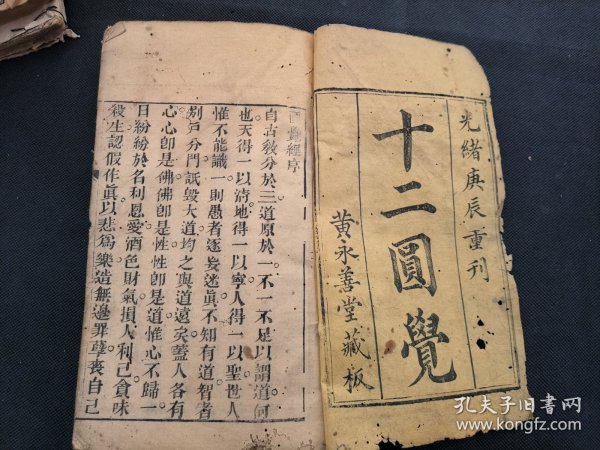 光緒庚辰重刊
十二圓覺
黃永善堂藏板
覺經序
自古教分於三道原於一不一不足以謂道何
也天得一以清地得一以寧人得一以聖世人
惟不能識一則愚者逐妄迷眞不知有道智者
別戸分門詆毀大道均之與道遠矣蓋人各有
心心卽是佛佛卽是性性卽是道惟心不歸一
日紛紛於名利恩愛酒色財氣損人利己貪味
殺生認假作眞以悲爲樂造無邊罪孽喪自己
孔夫子旧书网
www.kongfz.com